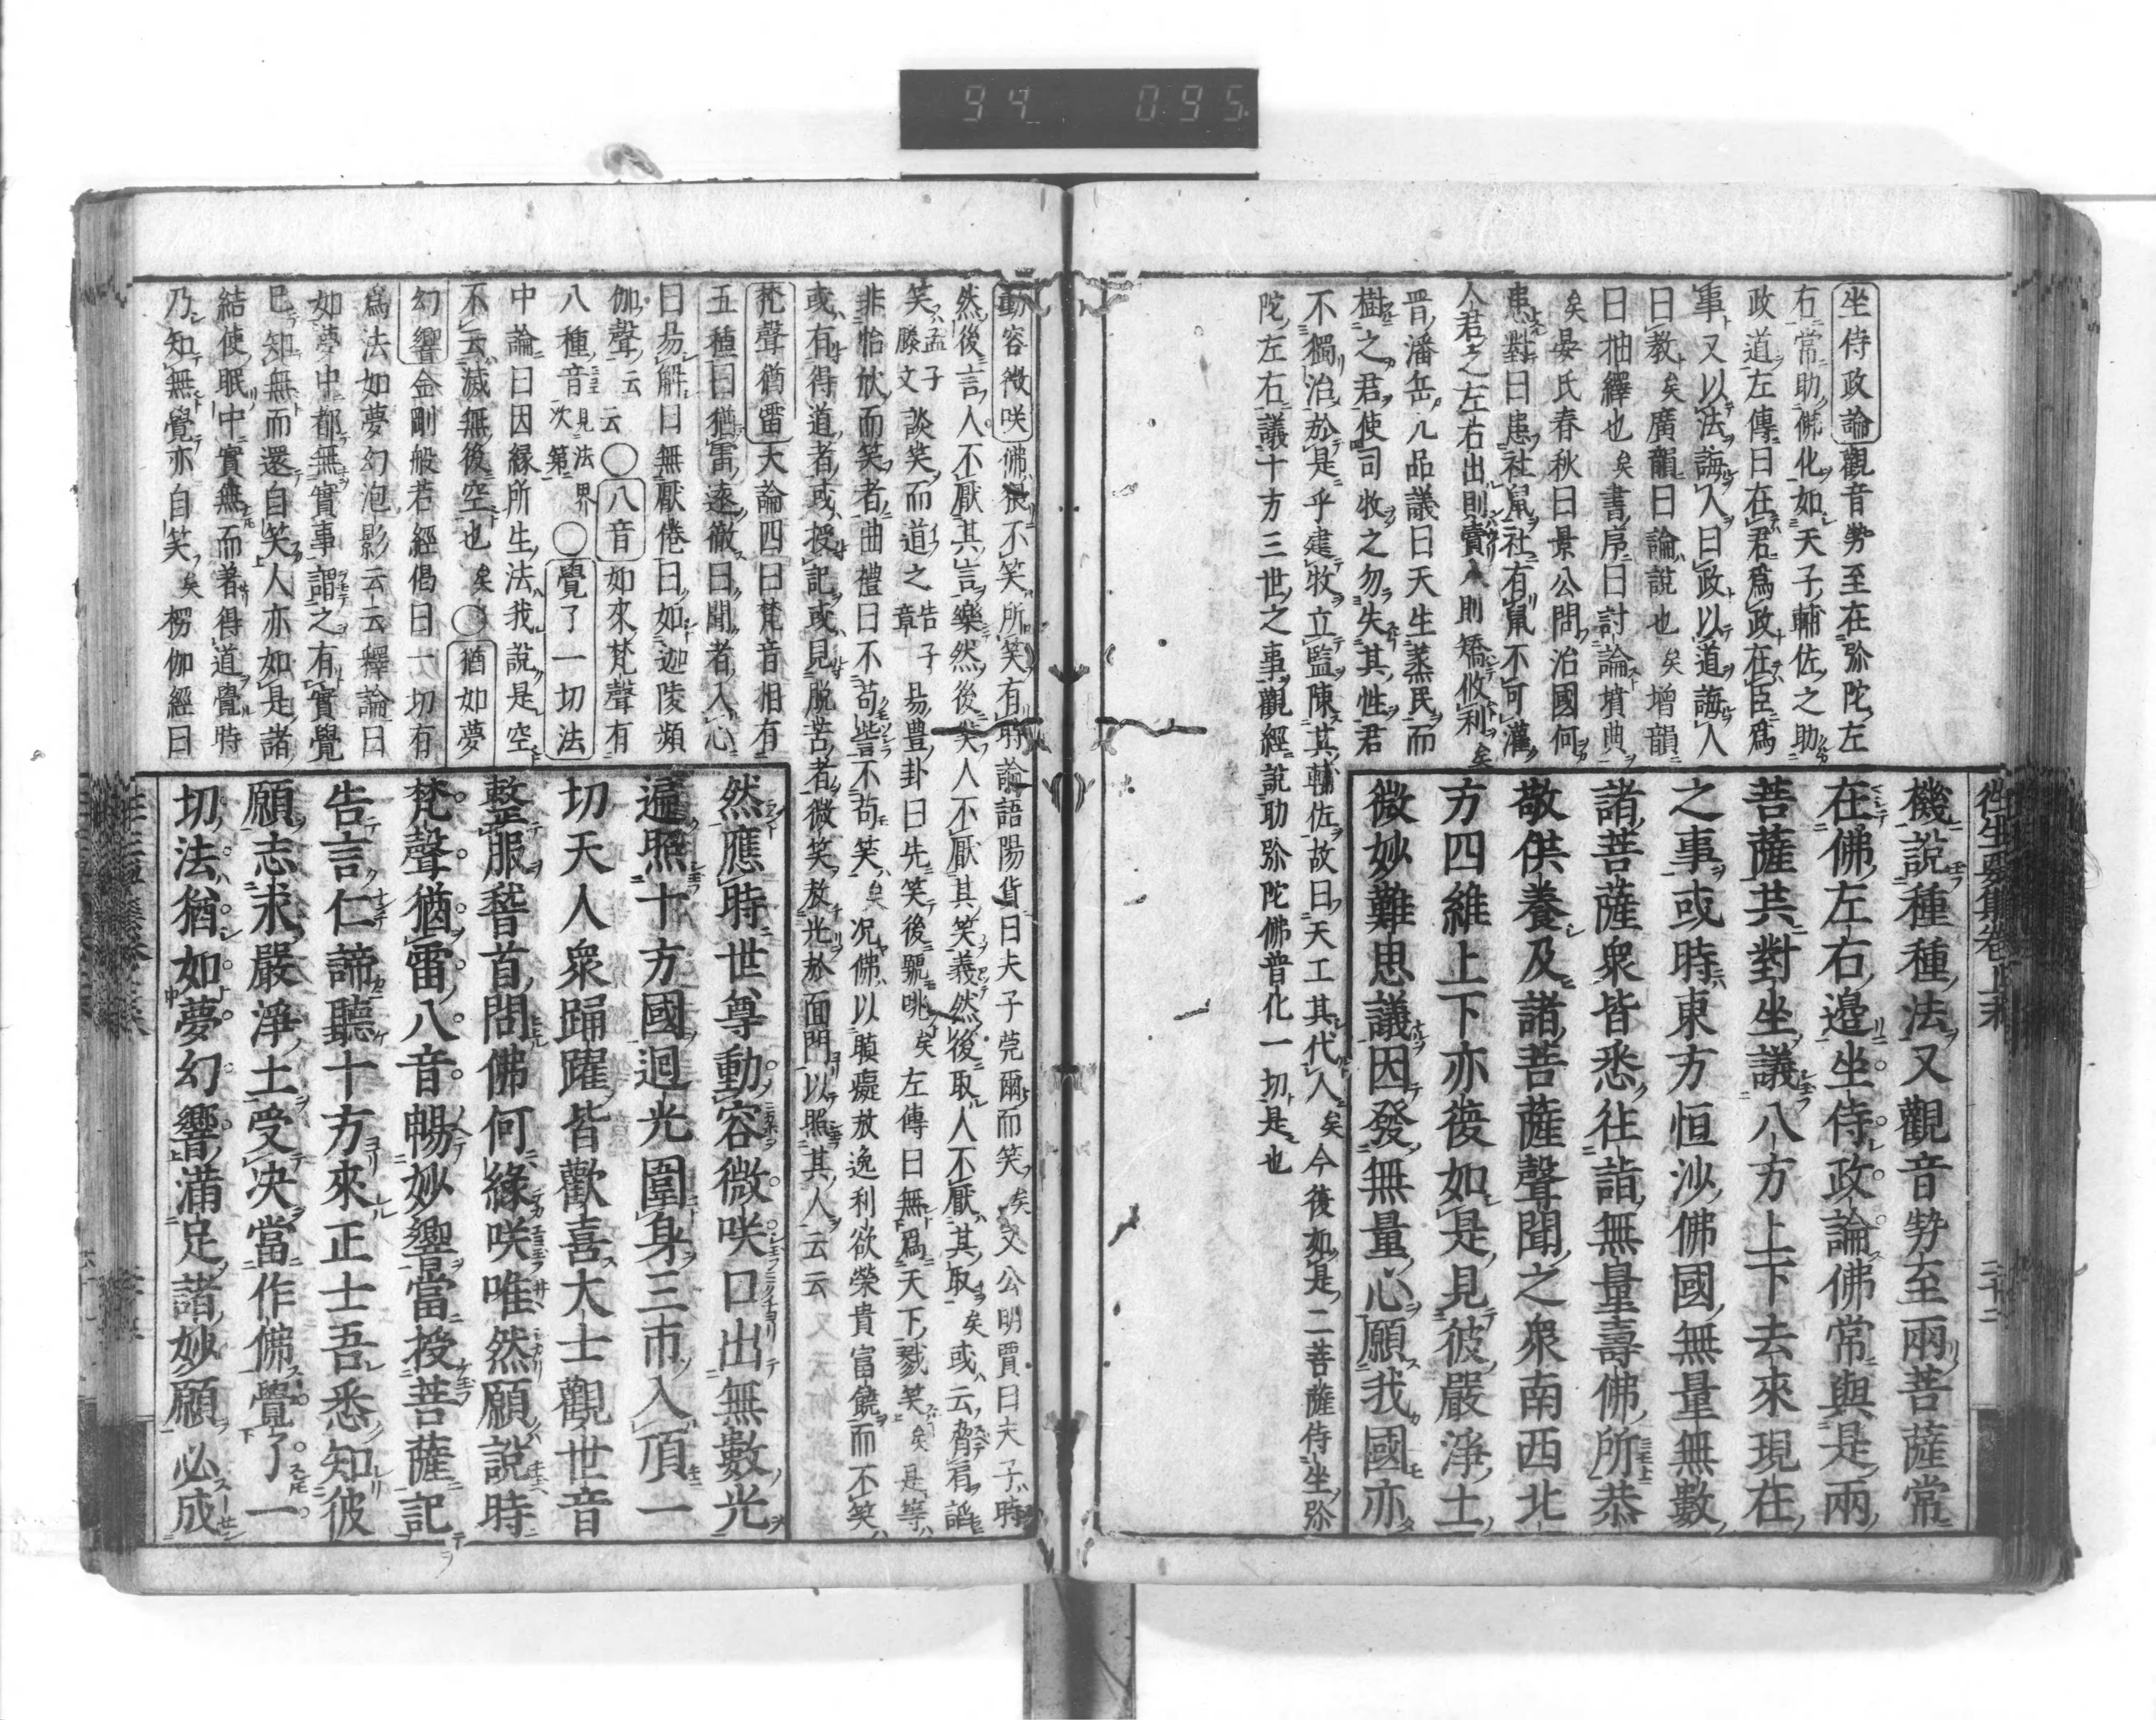 94 095
坐侍政論觀音勢至在弥陀左
右常助佛化如天子輔佐之助
政道左傳曰在君爲政在臣爲
事又以法誨人曰政以道誨人
曰教矣廣韻曰論説也矣增韻
曰抽繹也矣書序曰討論墳典
矣晏氏春秋曰景公問治國何
患對曰患社鼠社有鼠不可灌
人君之左右出則賣入則矯攸利矣
晋潘岳九品議曰天生蒸民而
樹之君使司牧之勿失其性君
不獨治於是乎建牧立監陳其輔佐故曰天工其代人矣今復如是二菩薩侍坐弥
陀左右議十方三世之事觀經説助弥陀佛普化一切是也
往生要集卷上末
二十二
機説種種法又觀音勢至兩菩薩常
在佛左右邊坐侍政論佛常與是兩
菩薩共對坐議八方上下去來現在
之事或時東方恒沙佛國無量無數
諸菩薩衆皆悉往詣無量壽佛所恭
敬供養及諸菩薩聲聞之衆南西北
方四維上下亦復如是見彼嚴淨土
微妙難思議因發無量心願我國亦
動容微咲佛猥不笑所笑有時論語陽貨曰夫子莞爾而笑矣又公明賈曰夫子時
然後言人不厭其言樂然後笑人不厭其笑義然後取人不厭其取矣或云脅肩諂
笑孟子滕文談笑而道之告子章易豊卦曰先笑後號咷矣左傳曰無爲天下戮笑矣是等
非怡忻而笑者曲禮曰不苟訾不苟笑矣况佛以瞋癡放逸利欲榮貴富饒而不笑
或有得道者或授記或見脱苦者微笑放光於面門以照其人云云
梵聲猶雷大論四曰梵音相有
五種曰猶雷遠徹曰聞者入心
曰易解曰無厭倦曰如迦陵頻
伽聲云云○八音如來梵聲有
八種音見法界次第○覺了一切法
中論曰因緣所生法我説是空
不云滅無後空也矣○猶如夢
幻響金剛般若經偈曰一切有
爲法如夢幻泡影云云釋論曰
如夢中都無實事謂之有實覺
已知無而還自笑人亦如是諸
結使眠中實無而著得道覺時
乃知無覺亦自笑矣楞伽經曰
然應時世尊動容微咲口出無數光
遍照十方國迴光圍身三帀入頂一
切天人衆踊躍皆歡喜大士觀世音
整服稽首問佛何緣咲唯然願説時
梵聲猶雷八音暢妙響當授菩薩記
告言仁諦聽十方來正士吾悉知彼
願志求嚴淨土受决當作佛覺了一
切法猶如夢幻響滿足諸妙願必成